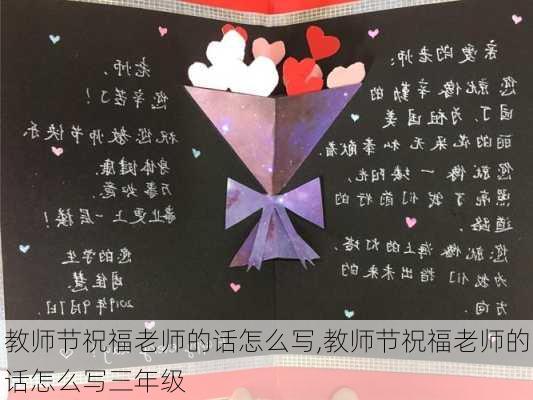 亲爱的老师:
您就像辛勤的
园丁,为祖国美
丽的花朵无私奉献着.
您就像一缕阳光,
照亮了我们前行的
道路.
您就像海上的灯塔,
为我们指出未来的
方向.
老师,
您辛苦了!
祝您教师节快乐
身体健康.
万事如意.
事业更上一层楼!
您的学生
2019年9月7日
教师节祝福老师的话怎么写,教师节祝福老师的
话怎么写三年级